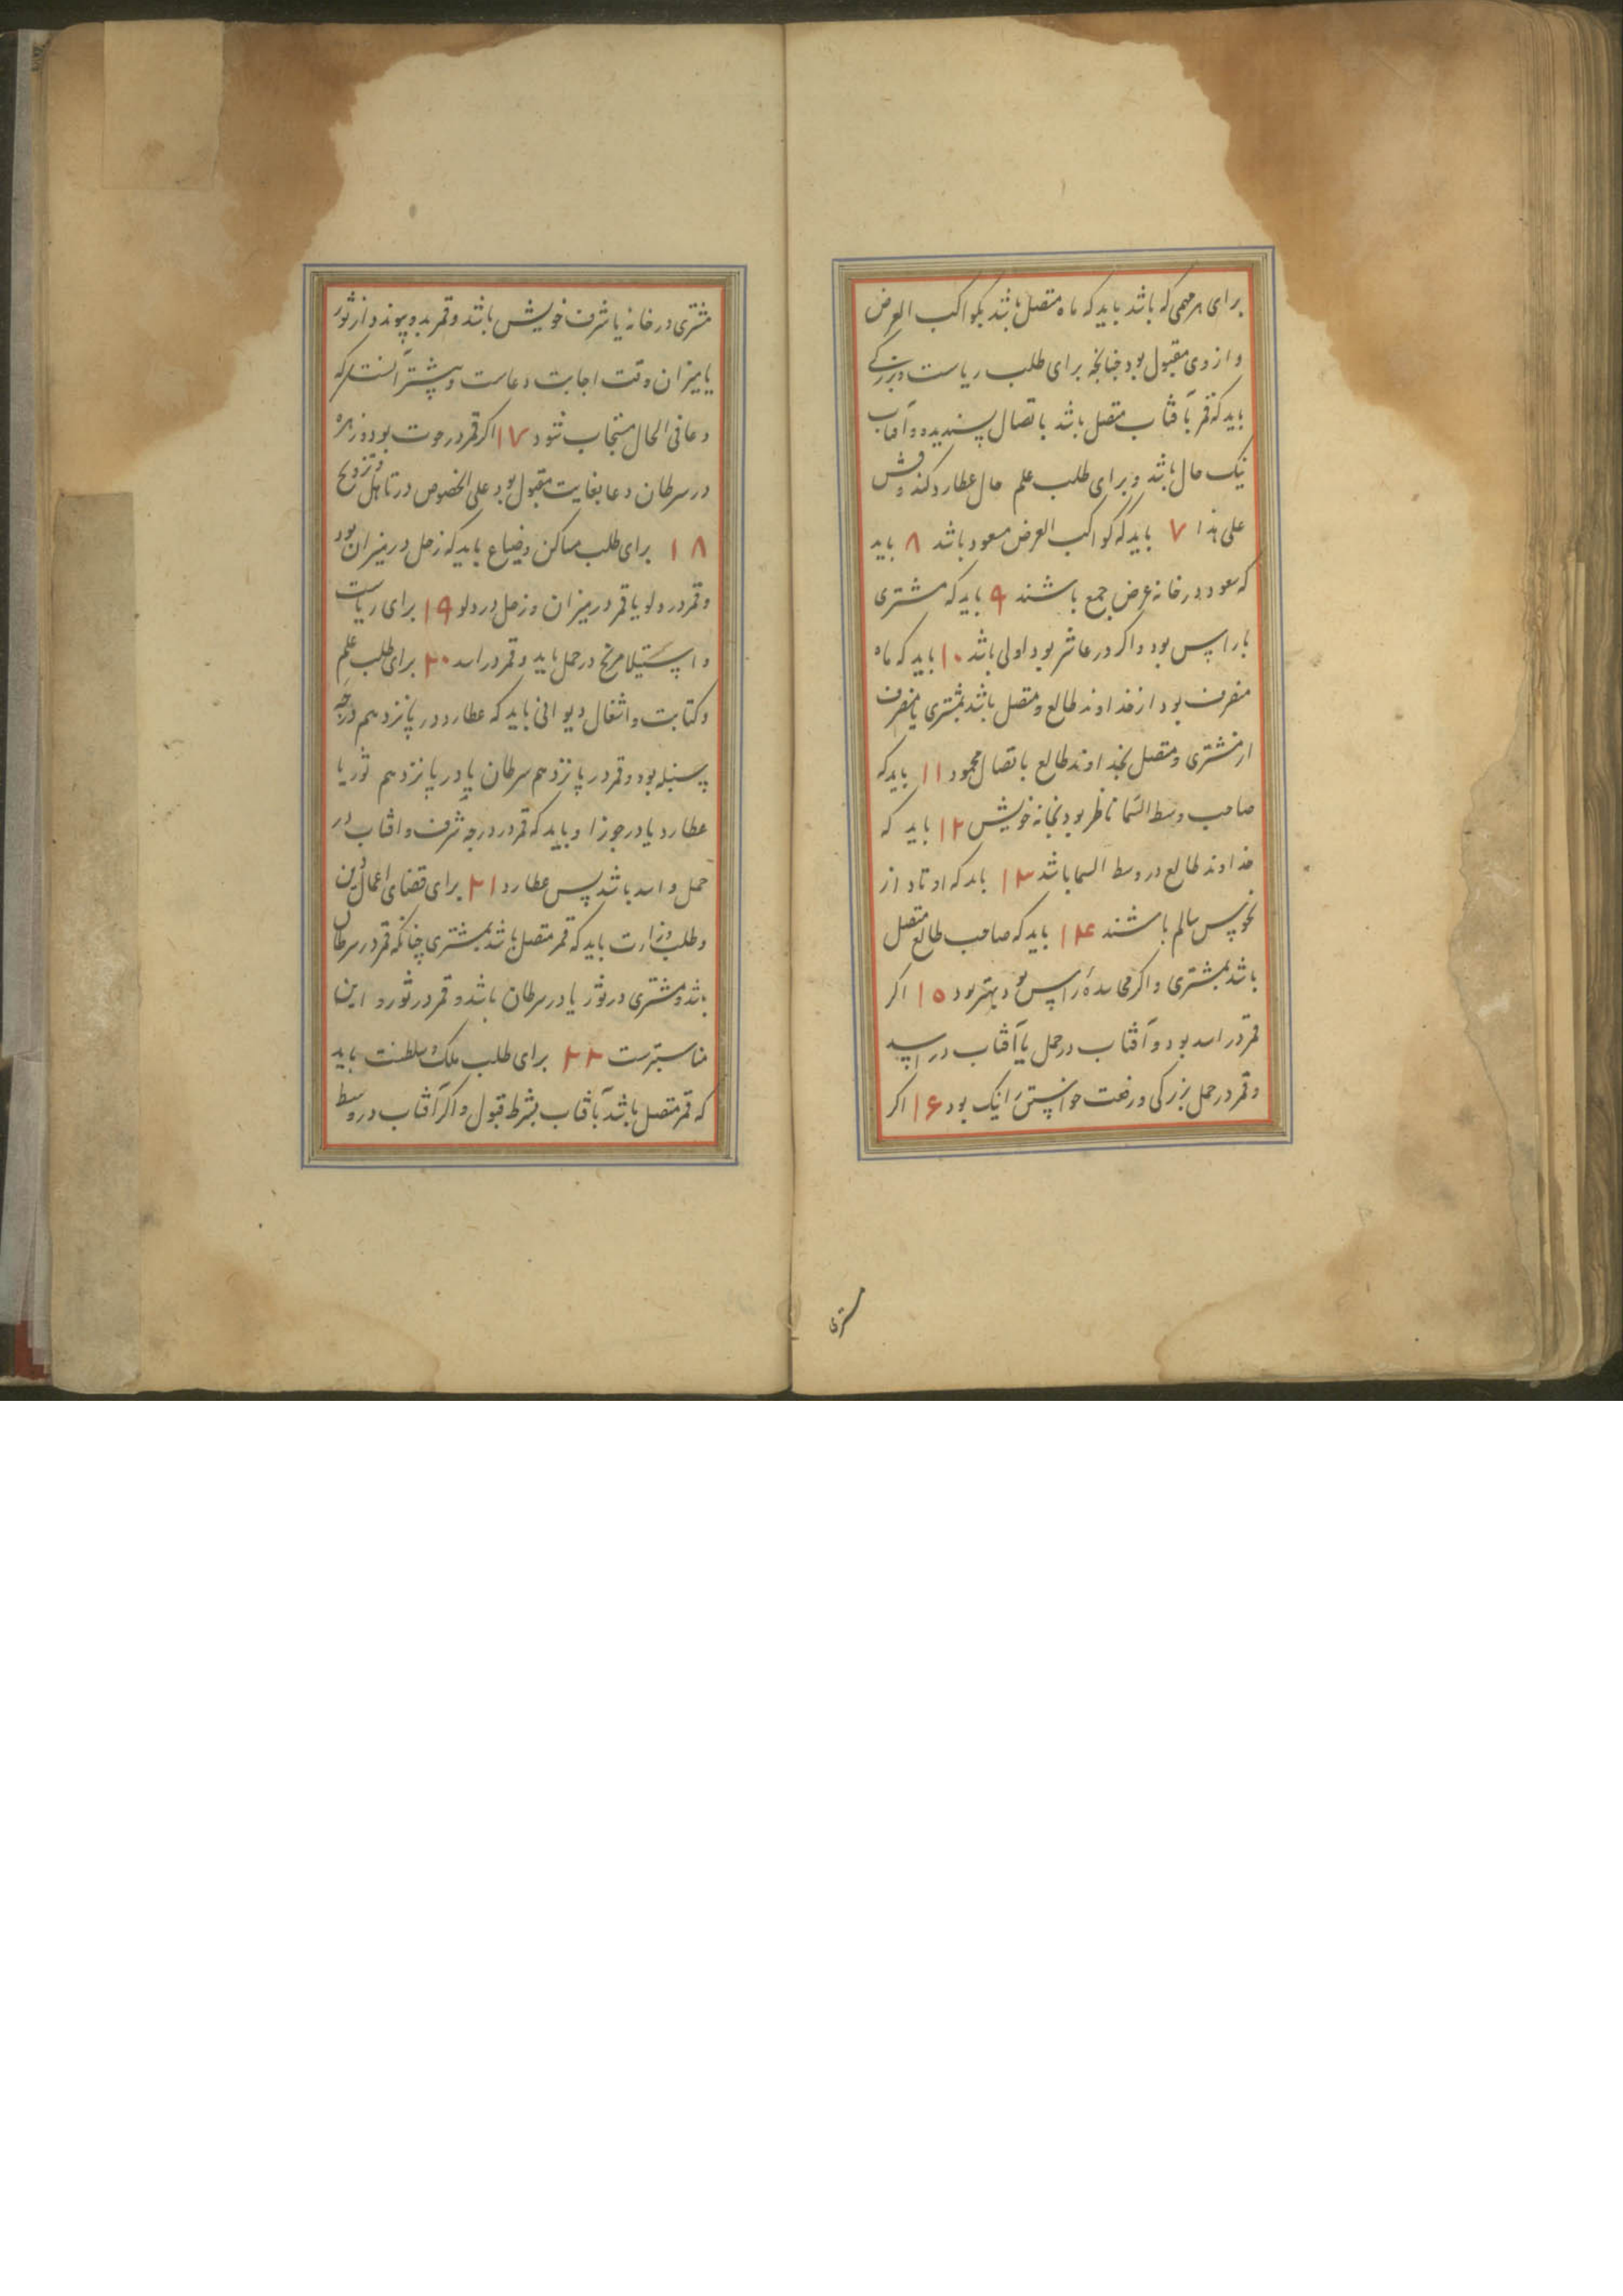 برای هر مهمی که باشد باید که ماه متصل باشد بکواکب الغرض
و از وی مقبول بود چنانچه برای طلب ریاست و بزرگی
باید که قمر بآفتاب متصل باشد باتصال پسندیده و آفتاب
نیک حال باشد و برای طلب علم حال عطارد کند و قس
علی هذا ۷ باید که کواکب الغرض مسعود باشد ۸ باید
که سعود در خانه غرض جمع باشند ۹ باید که مشتری
با راس بود و اگر در عاشر بود اولی باشد ۱۰ باید که ماه
منصرف بود از خداوند طالع و متصل باشد بمشتری یا منصرف
از مشتری و متصل بخداوند طالع باتصال محمود ۱۱ باید که
صاحب وسط السما ناظر بود بخانه خویش ۱۲ باید که
خداوند طالع در وسط السما باشد ۱۳ باید که اوتاد از
نحوس سالم باشند ۱۴ باید که صاحب طالع متصل
باشد بمشتری و اگر محاسده راس بود بهتر بود ۱۵ اگر
قمر در اسد بود و آفتاب در حمل یا آفتاب در اسد
و قمر در حمل بزرکی و رفعت خواستن را نیک بود ۱۶ اگر
مشتری
مشتری در خانه یا شرف خویش باشد و قمر بدو پیوندد از ثور
یا میزان وقت اجابت دعاست و بیشتر آنست که
دعا فی الحال مستجاب شود ۱۷ اگر قمر در حوت بود و زهره
در سرطان دعا بغایت مقبول بود علی الخصوص در تاهل و تزویج
۱۸ برای طلب مساکن و ضیاع باید که زحل در میزان بود
و قمر در دلو یا قمر در میزان و زحل در دلو ۱۹ برای ریاست
و استیلا مریخ در حمل باید و قمر در اسد ۲۰ برای طلب علم
و کتابت و اشغال دیوانی باید که عطارد در پانزدهم درجه
سنبله بود و قمر در پانزدهم سرطان یا در پانزدهم ثور یا
عطارد یا در جوزا و باید که قمر در درجه شرف و افتاب در
حمل و اسد باشد پس عطارد ۲۱ برای قضای اعمال دین
و طلب وزارت باید که قمر متصل باشد بمشتری چنانکه قمر در سرطان
باشد و مشتری در ثور یا در سرطان باشد و قمر در ثور و این
مناسبترست ۲۲ برای طلب ملک و سلطنت باید
که قمر متصل باشد بآفتاب بشرط قبول و اگر آفتاب در وسط